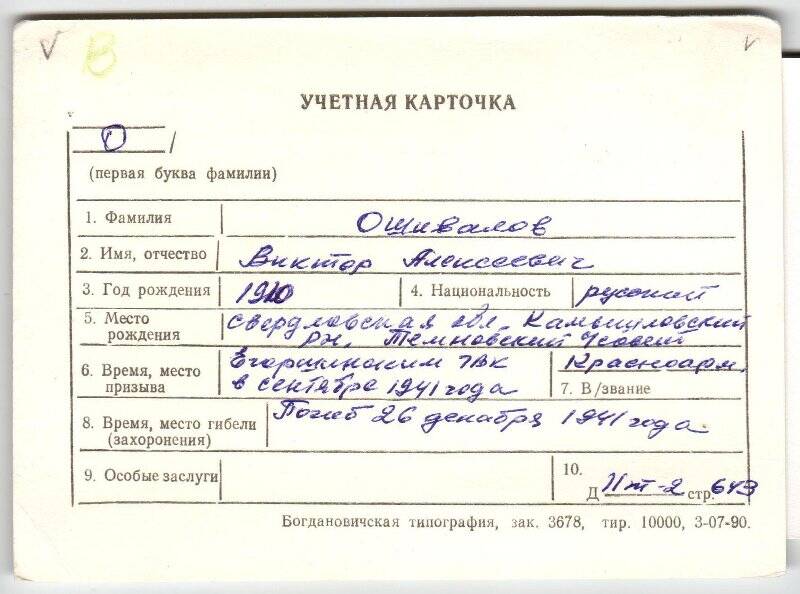 V
В
V
УЧЕТНАЯ КАРТОЧКА
О /
(первая буква фамилии)
1. Фамилия Ошивалов
2. Имя, отчество Виктор Алексеевич
3. Год рождения 1910 4. Национальность русский
5. Место рождения Свердловская обл. Камышловский
рн, Темновский с/совет
6. Время, место призыва Егоршинским РВК
в сентябре 1941 года
Красноарм.
7. В/звание
8. Время, место гибели (захоронения) Погиб 26 декабря 1941 года.
9. Особые заслуги
10.
Д II т-2 стр. 643
Богдановичская типография, зак. 3678, тир. 10000, 3-07-90.